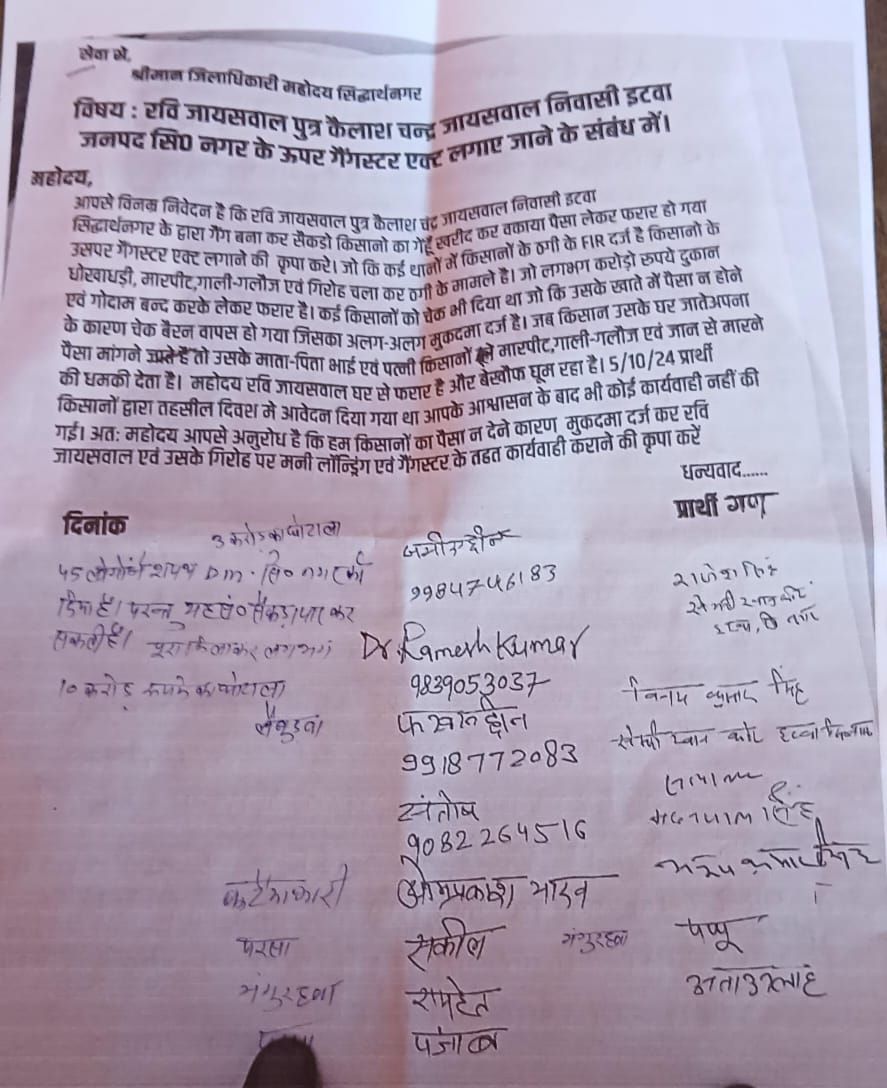 सेवा में,
श्रीमान जिलाधिकारी महोदय सिद्धार्थनगर
विषय : रवि जायसवाल पुत्र कैलाश चन्द्र जायसवाल निवासी इटवा
जनपद सि0 नगर के ऊपर गैंगस्टर एक्ट लगाए जाने के संबंध में।
महोदय,
आपसे विनम्र निवेदन है कि रवि जायसवाल पुत्र कैलाश चंद्र जायसवाल निवासी इटवा
सिद्धार्थनगर के द्वारा गैंग बना कर सैकडो किसानो का गेहूँ खरीद कर वकाया पैसा लेकर फरार हो गया
उसपर गैंगस्टर एक्ट लगाने की कृपा करे। जो कि कई थानों में किसानों के ठगी के FIR दर्ज है किसानो के
धोखाधड़ी, मारपीट,गाली-गलौज एवं गिरोह चला कर ठगी के मामले है। जो लगभग करोड़ो रूपये दुकान
एवं गोदाम बन्द करके लेकर फरार है। कई किसानों को चेक भी दिया था जो कि उसके खाते में पैसा न होने
के कारण चेक बैरन वापस हो गया जिसका अलग-अलग मुकदमा दर्ज है। जब किसान उसके घर जातेअपना
पैसा मांगने जाते है तो उसके माता-पिता भाई एवं पत्नी किसानों से मारपीट,गाली-गलौज एवं जान से मारने
की धमकी देता है। महोदय रवि जायसवाल घर से फरार है और बेखौफ घूम रहा है। 5/10/24 प्रार्थी
किसानों द्वारा तहसील दिवश मे आवेदन दिया गया था आपके आश्वासन के बाद भी कोई कार्यवाही नहीं की
गई। अतः महोदय आपसे अनुरोध है कि हम किसानों का पैसा न देने कारण मुकदमा दर्ज कर रवि
जायसवाल एवं उसके गिरोह पर मनी लॉन्ड्रिंग एवं गैंगस्टर के तहत कार्यवाही कराने की कृपा करें
धन्यवाद......
दिनांक
प्रार्थी गण
3 करोड़ का घोटाला
45 लोगों ने शपथ DM. सि० नगर को
दिया है। परन्तु यह सं० सैकड़ा पार कर
सकती है। पूरा मिलाकर लगभग
10 करोड़ रूपये का घोटाला
9984746183
राजेश सिंह
Dr. Ramesh Kumar
9839053037
विनय कुमार सिंह
9918772083
संतोष
9082264516
ओमप्रकाश यादव
परसा
सकील
पप्पू
रामहेत
अताउल्लाह
पंजाब